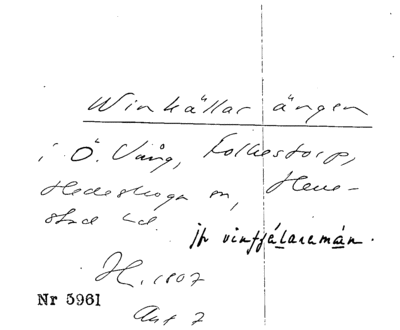 Winkällar ängen
i Ö. Vång, Folkestorp,
Hedeskoga sn, Herre-
stad hd.
jfr vinfjälaramán.
H. 1807
Akt 7
Nr 5961